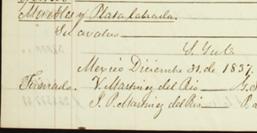 Muebles y Plata labrada.
Se avaluo
S. Y. u O.
Mexico Diciembre 31, de 1837.
Firmado. V. Martinez del Rio
J. P. Martinez del Rio